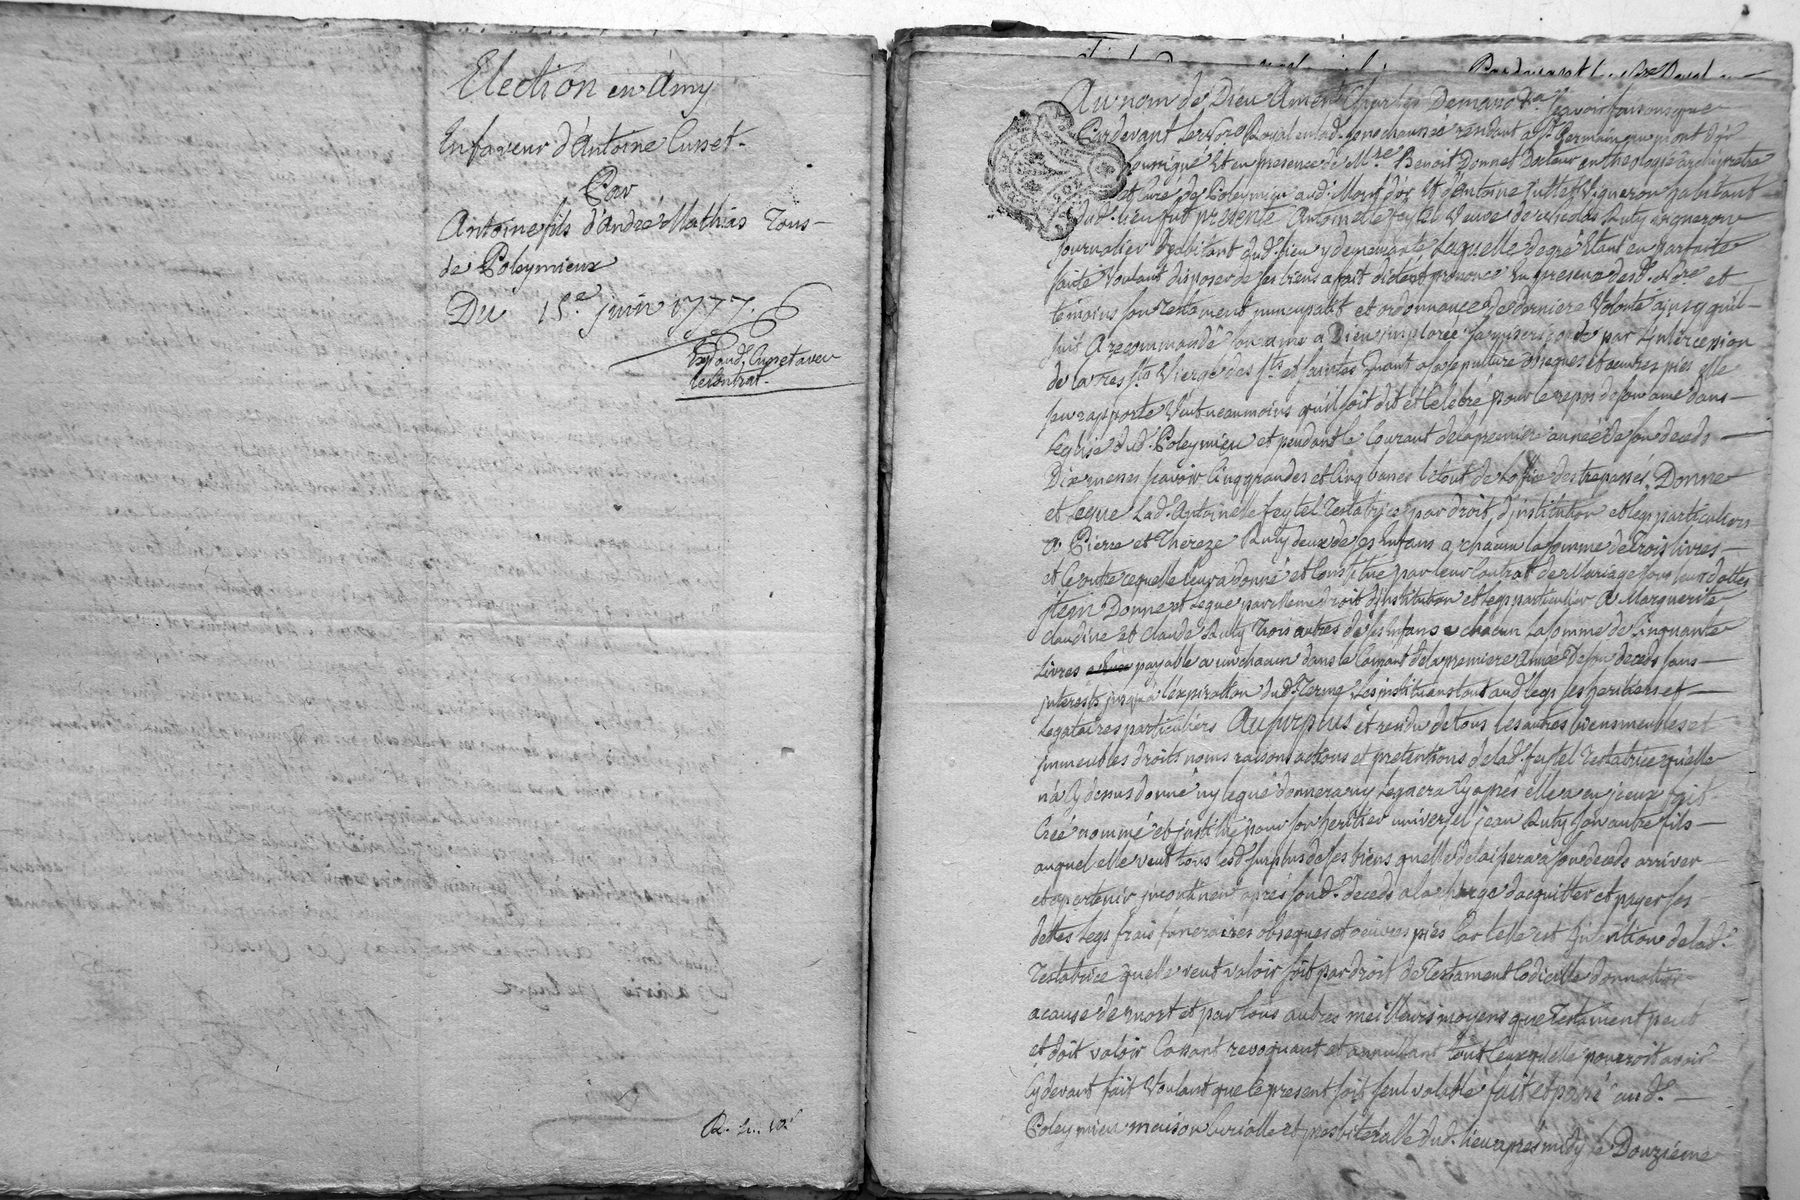 Election en Amy
Enfaveur d'Antoine Cusset
Par
Antoine fils d'André Mathias Tous
de Poleymieux
Du 15.e juin 1777.
Exp aud. Cusset avec
le Contrat
R. h.. 10.s
Au nom de Dieu Amen Charles Demano scavoir faisons que
Pardevant le No.re Royal en lad. senechaussée résidant a S.t Germain au mont d'or
soussigné Et en presence de M.re Benoit Donnet Docteur en theologie archiprêtre
et Curé de Poleymieu aud. Mont d'or Et d'Antoine Juttet Vigneron habitant
dud. lieu fut presente Antoinette feytel Veuve de Nicolas Ruty vigneron
journalier habitant dud. lieu y demeurante Laquelle de gré Etant en parfaite
santé Voulant disposer de ses biens a fait dicté et prononcé En presence desd. No.re et
temoins son Testament nuncupatif et ordonnance de derniere Volonté ainsy quil
suit A recommandé son ame a Dieu imploree sa misericorde par l'intercession
de la tres s.te Vierge des s.ts et saintes Quant a la sepulture obseques et oeuvres pies elle
sen rapporte Veut neanmoins qu'il soit dit et Celebré pour le repos de son ame dans
leglise dud. Poleymieu et pendant le Courant de la premiere année de son deceds
Dix messes scavoir Cinq grandes et Cinq basses le tout de loffice des trepassés. Donne
et legue Lad. Antoinette feytel Testatrice par droit d'institution et legs particuliers
a Pierre et Thereze Ruty deux de ses Enfans a chacun la somme de trois livres
et Ce outre cequelle leur a donné et Constitué par leur Contrat de Mariage sous leurs dottes
jtem Donne et legue par même droit d'institution et legs particulier a Marguerite
Claudine et Claude Ruty Trois autres de ses Enfans a chacun La somme de Cinquante
Livres payable a un chacun dans le Courant de la premiere Année De son deceds sans
jnterets jusqu'a l'expiration dud. Terme Les instituans tout aud. legs ses heritiers et
Legataires particuliers Au surplus et residu de tous les autres biens meubles et
jmmeubles droits noms raisons actions et pretentions de lad. feytel Testatrice qu'elle
n'a Cy dessus donné ny legué donnera ny Leguera Cy apres elle a en jceux fait
Créé nommé et jnstitué pour son heritier universel jean Ruty son autre fils
auquel elle veut tous lesd. surplus de ses biens quelle delaissera a son deceds arriver
et apartenir jncontinent après sond. deceds a la charge dacquitter et payer ses
dettes legs frais funeraires obseques et oeuvres pies Car telle est L'intention de lad.e
Testatrice quelle veut valoir soit par droit de Testament Codicille donnation
acause de mort et par tous autres meilleurs moyens que Testament peut
et doit valoir Cassant revoquant et annullant tout Ceux qu'elle pourroit avoir
Cydevant fait Voulant que le present soit seul valable fait et passé aud.
Poleymieu maison Curialle et presbiteralle dud. lieu après midy le Douzième